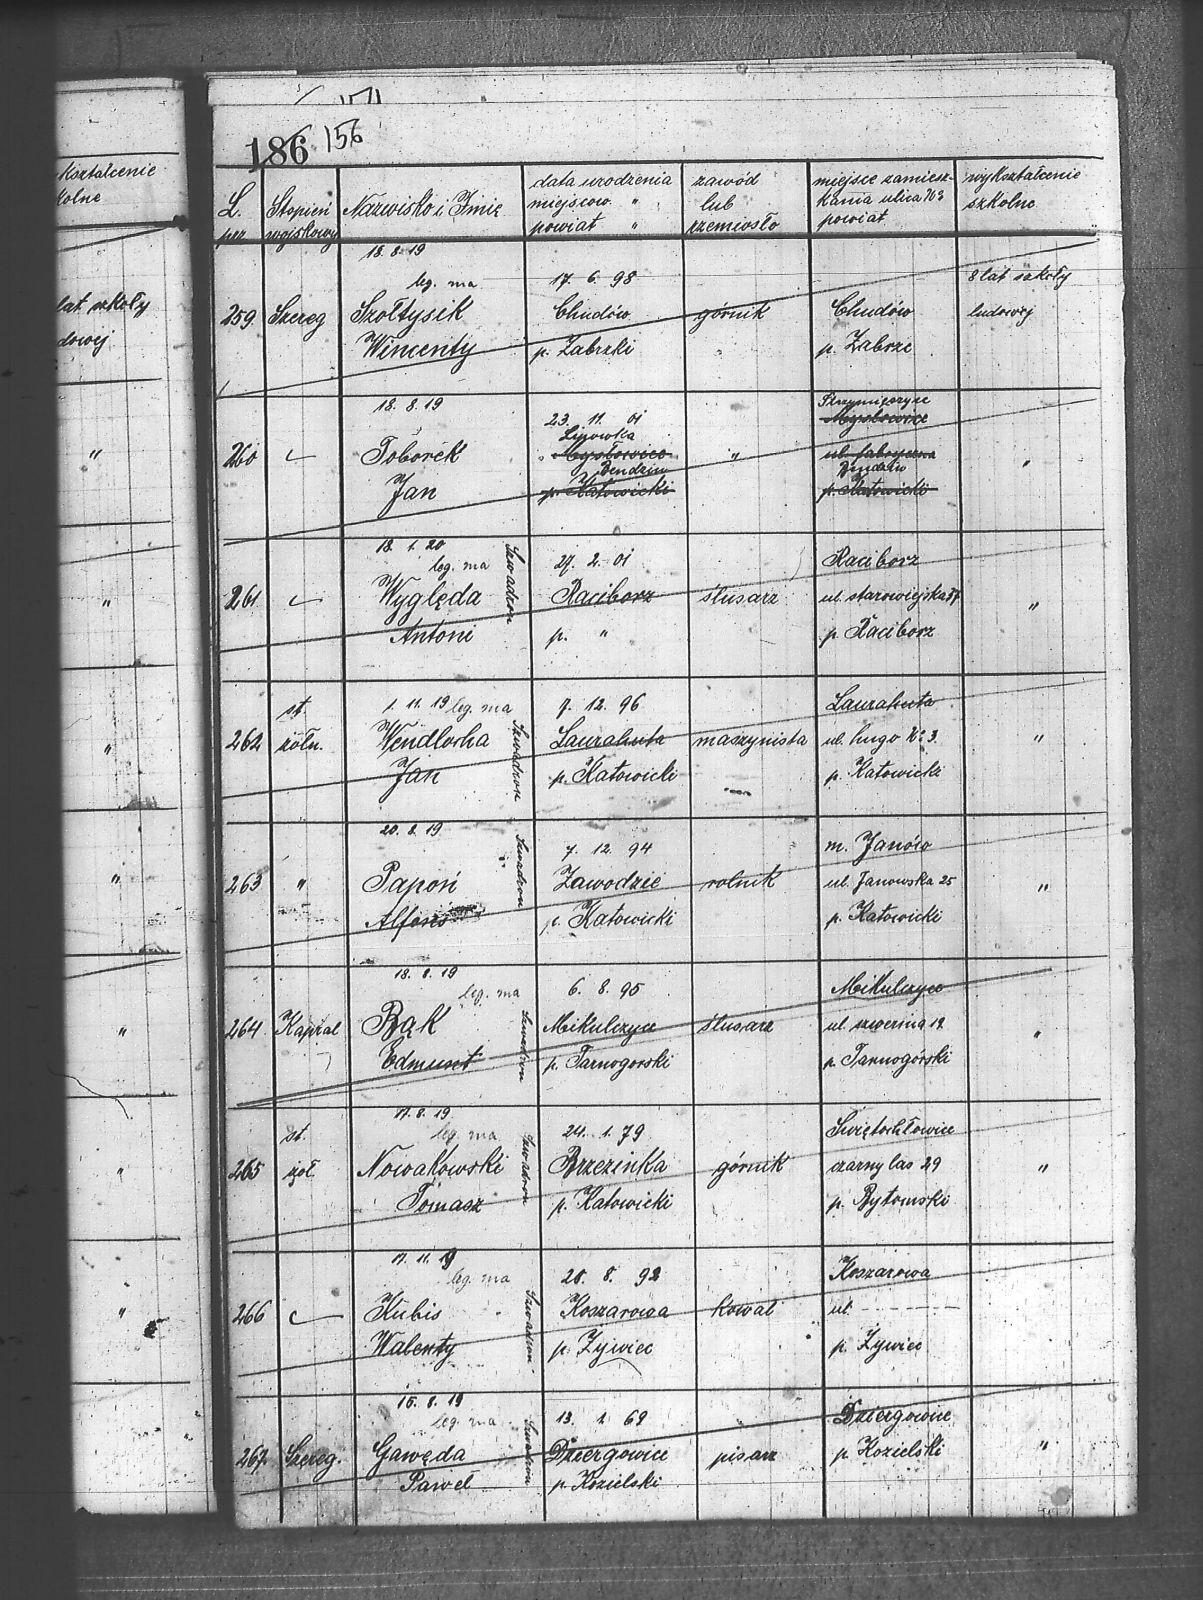 kształcenie
kolne
lat szkoły
dowej
"
"
"
"
"
"
"
186 156
L. prz.
Stopień wojskowy
Nazwisko i Imię
data urodzenia
miejscow. "
powiat "
zawód
lub
rzemiosło
miejsce zamiesz-
kania ulica No
powiat
wykształcenie
szkolne
18.8.19
leg. ma
259 Szereg
Szołtysik
Wincenty
17. 6. 98
Chudów
p. Zabrzki
górnik
Chudów
p. Zabrze
8 lat szkoły
ludowej
18.8.19
260
Toborek
Jan
23. 11. 01
Lipówka
Mysłowice
Bendzin
p. Katowicki
"
Strzymieszyce
Mysłowice
ul. fabryczna
Bendzin
p. Katowicki
"
18. 1. 20
leg. ma
261
Wyględa
Antoni
Szwadron
27. 2. 01
Raciborz
p. "
ślusarz
Raciborz
ul. starowiejska 37
p. Raciborz
"
1. 11. 19 leg. ma
262
st.
żołn.
Wendlocha
Jan
Szwadron
7. 12. 96
Laurahuta
p. Katowicki
maszynista
Laurahuta
ul. hugo No 3
p. Katowicki
"
20. 8. 19
263 "
Papoń
Alfons
Szwadron
7. 12. 94
Zawodzie
p. Katowicki
rolnik
m. Janów
ul. Janowska 25
p. Katowicki
"
18. 8. 19
leg. ma
264 Kapral
Bąk
Edmunt
Szwadron
6. 8. 95
Mikulczyce
p. Tarnogorski
ślusarz
Mikulczyce
ul szwerina 12
p. Tarnogórski
"
17. 8. 19
leg. ma
265
st.
żoł
Nowakowski
Tomasz
Szwadron
24. 1. 79
Brzezinka
p. Katowicki
górnik
Świętochłowice
czarny las 29
p. Bytomski
"
17. 11. 19
leg. ma
266
Kubis
Walenty
Szwadron
28. 8. 92
Koszarowa
p. Żywiec
kowal
Koszarowa
ul.
p. Żywiec
15. 8. 19
leg. ma
267. Szereg.
Gawęda
Paweł
Szwadron
13. 1. 69
Dziergowice
p. Kozielski
pisarz
Dziergowice
p. Kozielski
"